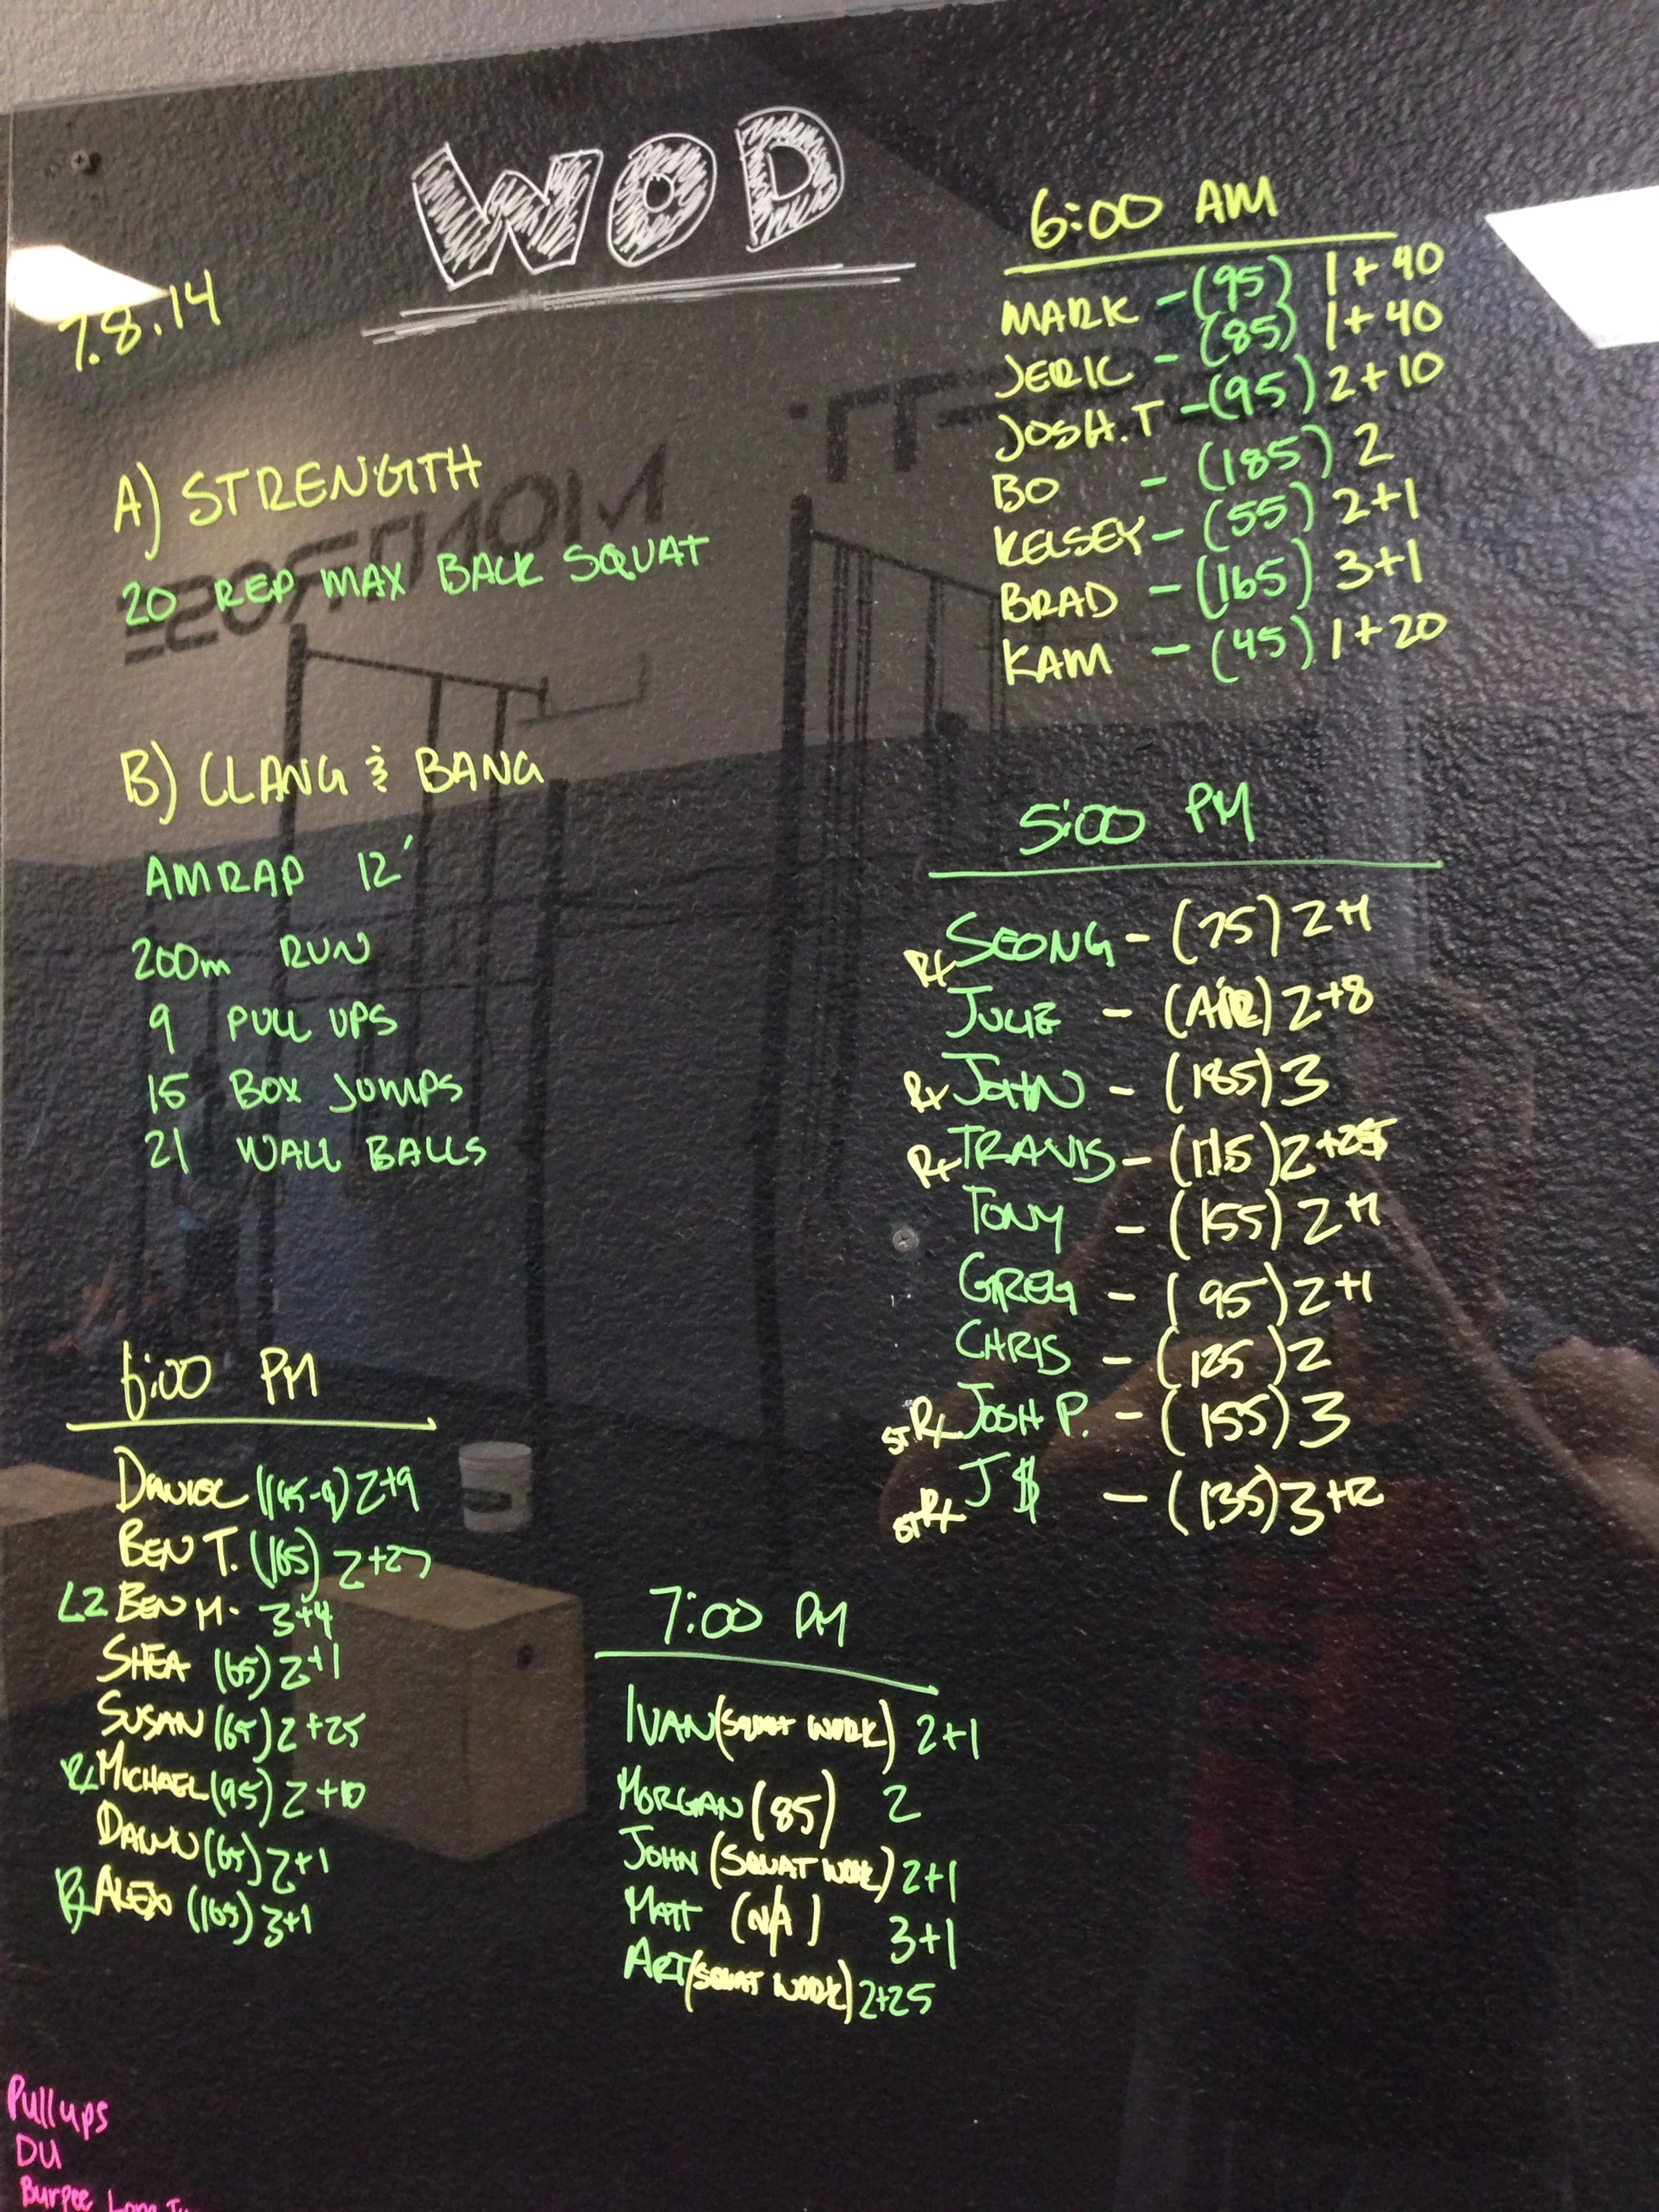 WOD
7.8.14
A) STRENGTH
20 REP MAX BACK SQUAT
B) CLANG & BANG
AMRAP 12'
200m RUN
9 PULL UPS
15 BOX JUMPS
21 WALL BALLS
6:00 AM
MARK - (95) 1+40
JERIC - (85) 1+40
JOSH.T - (95) 2+10
BO - (185) 2
KELSEY - (55) 2+1
BRAD - (165) 3+1
KAM - (45) 1+20
5:00 PM
Rx SEONG - (75) 2+1
JULIE - (AIR) 2+8
Rx JOHN - (185) 3
Rx TRAVIS - (115) 2+25
TONY - (155) 2+1
GREG - (95) 2+1
CHRIS - (125) 2
STRx JOSH P. - (155) 3
STRx J$ - (135) 3+12
6:00 PM
DANIEL (145-9) 2+9
BEN T. (165) 2+27
L2 BEN M. 3+4
SHEA (65) 2+1
SUSAN (65) 2+25
Rx MICHAEL (95) 2+10
DAWN (65) 2+1
Rx ALEX (165) 3+1
7:00 PM
IVAN (SQUAT WORK) 2+1
MORGAN (85) 2
JOHN (SQUAT WORK) 2+1
MATT (N/A) 3+1
ART (SQUAT WORK) 2+25
Pull ups
DU
Burpee Long